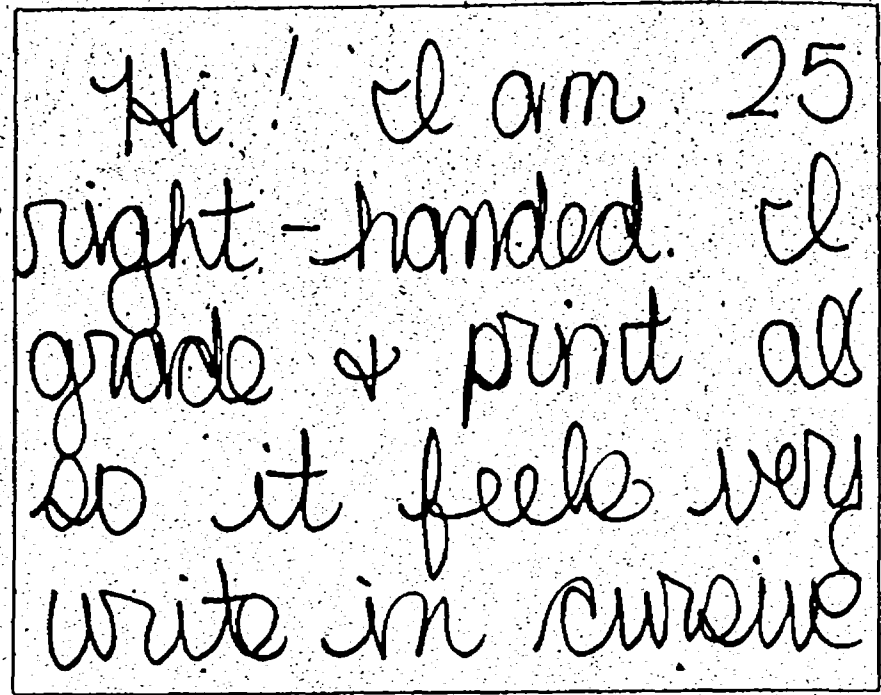 Hi! I am 25
right-handed. I
grade & print all
so it feels very
write in cursive